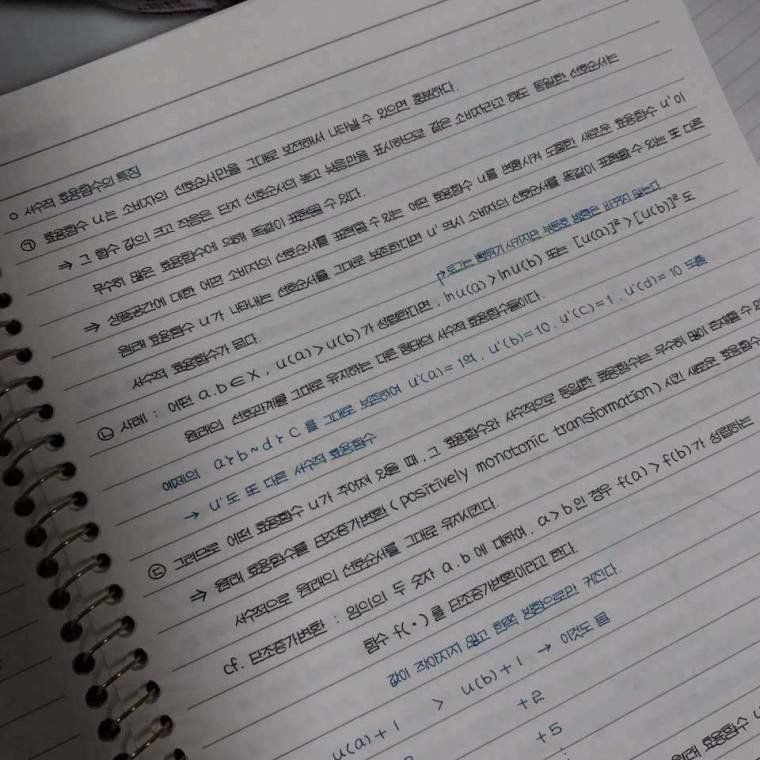 ○ 서수적 효용함수의 특징
㉠ 효용함수 u는 소비자의 선호순서만을 그대로 보전해서 나타낼 수 있으면 충분하다.
⇒ 그 함수 값의 크고 작음은 단지 선호순서의 높고 낮음만을 표시하므로 같은 소비자라고 해도 동일한 선호순서는
무수히 많은 효용함수에 의해 똑같이 표현될 수 있다.
⇒ 상품공간에 대한 어떤 소비자의 선호순서를 표현할 수 있는 어떤 효용함수 u를 변형시켜 도출한 새로운 효용함수 u'이
원래 효용함수 u가 나타내는 선호순서를 그대로 보존한다면 u' 역시 소비자의 선호순서를 똑같이 표현할 수 있는 또 다른
서수적 효용함수가 된다.
로그는 변화시키지만 부등호 방향은 바뀌지 않는다
㉡ 사례 : 어떤 a.b∈X, u(a)>u(b)가 성립한다면, lnu(a)>lnu(b) 또는 [u(a)]²>[u(b)]²도
원래의 선호관계를 그대로 유지하는 다른 형태의 서수적 효용함수들이다.
예제의 a≻b~d≻c를 그대로 보존하여 u'(a)=19, u'(b)=10, u'(c)=1, u'(d)=10 도출
→ u'도 또 다른 서수적 효용함수
㉢ 그러므로 어떤 효용함수 u가 주어져 있을 때, 그 효용함수와 서수적으로 동일한 효용함수는 무수히 많이 존재할 수 있
⇒ 원래 효용함수를 단조증가변환(positively monotonic transformation)시킨 새로운 효용함수
서수적으로 원래의 선호순서를 그대로 유지시킨다.
cf. 단조증가변환 : 임의의 두 숫자 a.b에 대하여, a>b인 경우 f(a)>f(b)가 성립하는
함수 f(·)를 단조증가변환이라고 한다.
값이 작아지지 않고 한쪽 방향으로만 커진다.
u(a)+1 > u(b)+1 → 이것도 됨
+2
+5
원래 효용함수